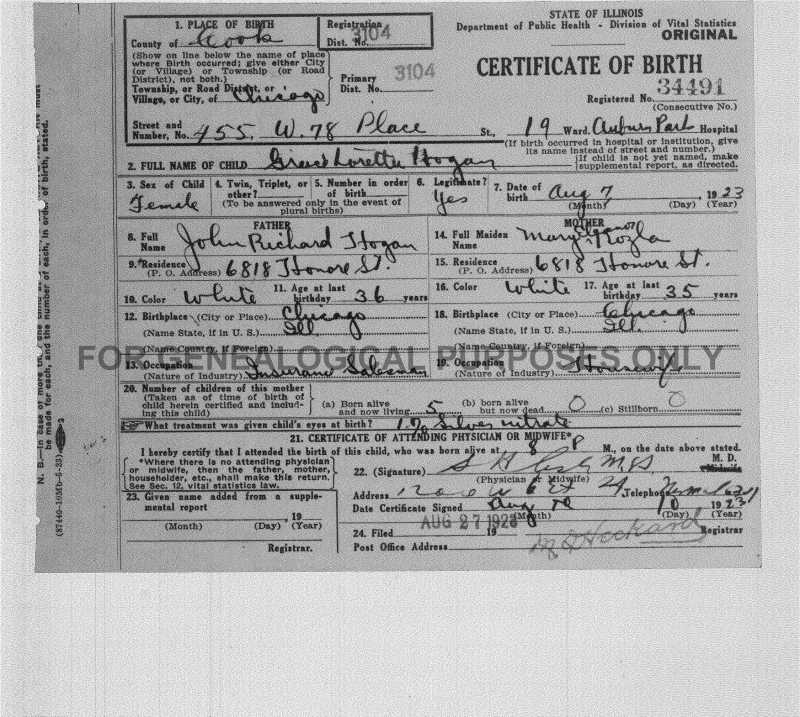 STATE OF ILLINOIS
Department of Public Health - Division of Vital Statistics
ORIGINAL
CERTIFICATE OF BIRTH
Registered No. 34491
(Consecutive No.)
1. PLACE OF BIRTH
County of Cook
Registration Dist. No. 3104
(Show on line below the name of place
where Birth occurred; give either City
(or Village) or Township (or Road
District), not both.)
Primary Dist. No. 3104
Township, or Road District, or
Village, or City, of Chicago
Street and
Number, No. 455 W. 78 Place St., 19 Ward. Auburn Park Hospital
(If birth occurred in hospital or institution, give
its name instead of street and number.)
2. FULL NAME OF CHILD Grace Lorette Hogan
(If child is not yet named, make
supplemental report, as directed.
3. Sex of Child Female
4. Twin, Triplet, or other?
5. Number in order of birth
(To be answered only in the event of
plural births)
6. Legitimate? Yes
7. Date of birth Aug 7 1923
(Month) (Day) (Year)
FATHER
8. Full Name John Richard Hogan
9. Residence 6818 Honore St.
(P. O. Address)
10. Color White
11. Age at last birthday 36 years
12. Birthplace (City or Place) Chicago
(Name State, if in U. S.) Ill
(Name Country, if Foreign)
13. Occupation Insurance Salesman
(Nature of Industry)
MOTHER
14. Full Maiden Name Mary Eleanor
15. Residence 6818 Honore St.
(P. O. Address)
16. Color White
17. Age at last birthday 35 years
18. Birthplace (City or Place) Chicago
(Name State, if in U. S.) Ill.
(Name Country, if Foreign)
19. Occupation Housewife
(Nature of Industry)
FOR GENEALOGICAL PURPOSES ONLY
20. Number of children of this mother
(Taken as of time of birth of
child herein certified and includ-
ing this child)
(a) Born alive and now living 5
(b) born alive but now dead 0
(c) Stillborn 0
What treatment was given child's eyes at birth? 1% Silver nitrate
21. CERTIFICATE OF ATTENDING PHYSICIAN OR MIDWIFE*
I hereby certify that I attended the birth of this child, who was born alive at 8 P M., on the date above stated.
*Where there is no attending physician
or midwife, then the father, mother,
householder, etc., shall make this return.
See Sec. 12, vital statistics law.
22. (Signature) M. D.
Midwife
(Physician or Midwife)
Address Telephone
Date Certificate Signed Aug 10 1923
(Month) (Day) (Year)
23. Given name added from a supple-
mental report
, 19
(Month) (Day) (Year)
Registrar.
24. Filed AUG 27 1923 19
Registrar
Post Office Address
N. B.—In case of more than one child at a birth
be made for each, and the number of each, in order of birth, stated.